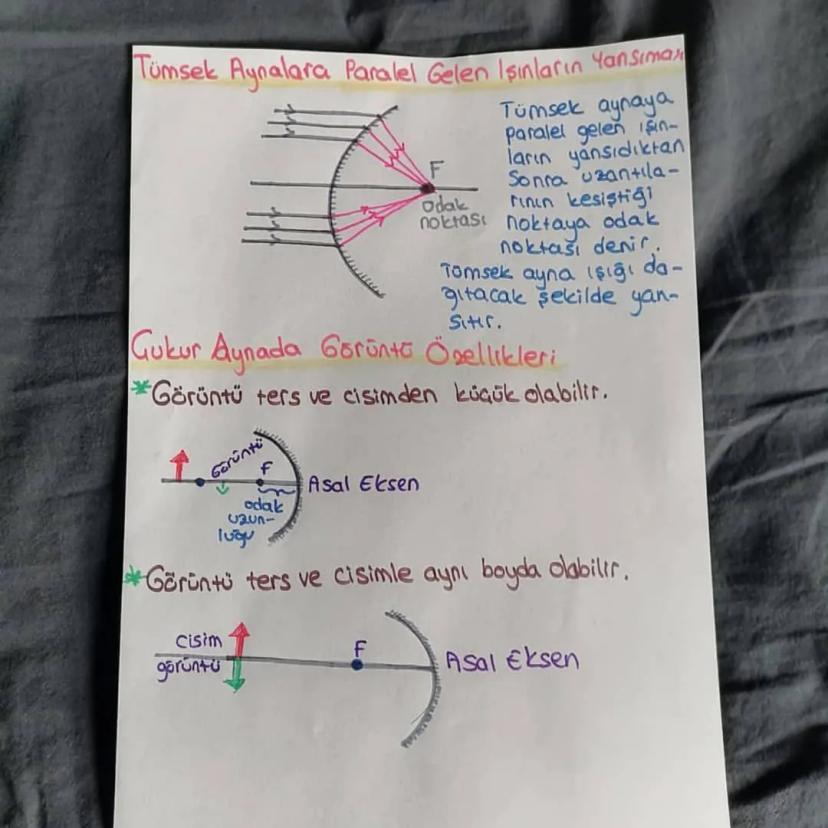 Tümsek Aynalara Paralel Gelen Işınların Yansıması
Tümsek aynaya
paralel gelen ışın-
ların yansıdıktan
Sonra uzantıla-
rının kesiştiği
noktaya odak
noktası denir.
Tümsek ayna ışığı da-
ğıtacak şekilde yan-
sıtır.
F
odak
noktası
Çukur Aynada Görüntü Özellikleri
*Görüntü ters ve cisimden küçük olabilir.
Görüntü
F
Asal Eksen
odak
uzun-
luğu
*Görüntü ters ve cisimle aynı boyda olabilir.
cisim
görüntü
F
Asal Eksen